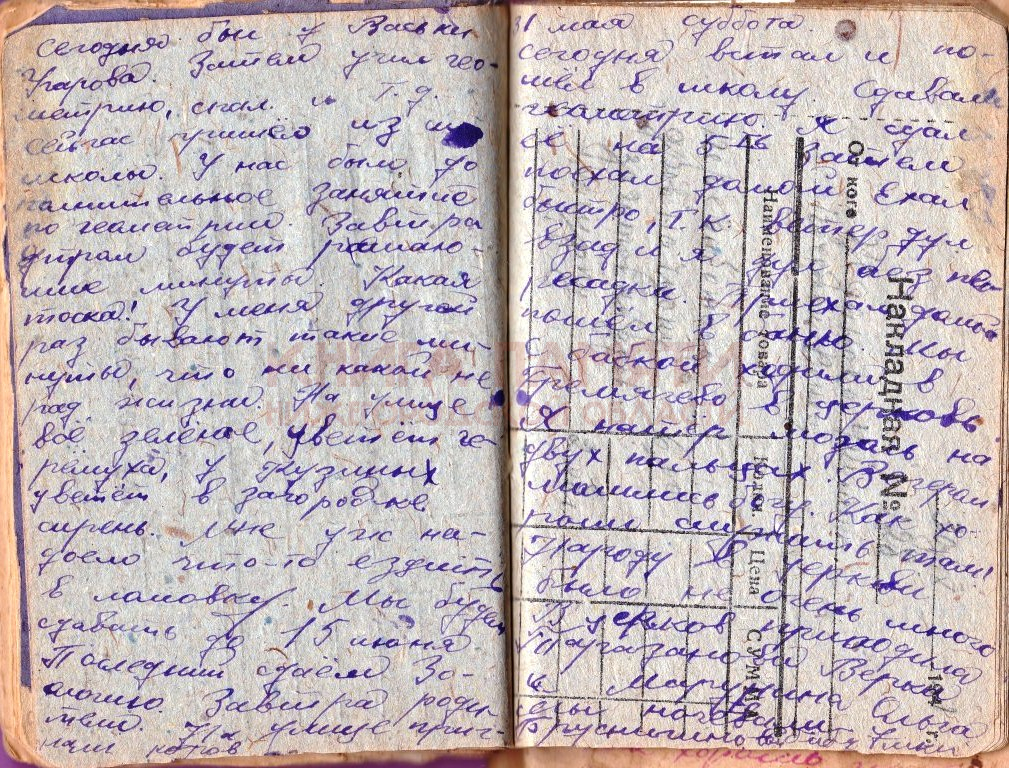 сегодня был у Васьки
Уварова. Затем учил гео-
метрию, спал. и т.д.
сейчас пришёл из
школы. У нас было до
полнительное занятие
по геометрии. Завтра
утром будут решаю-
щие минуты. Какая
тоска! У меня другой
раз бывают такие ми-
нуты, что ни какой не
рад жизни. На улице
всё зелёное, цветёт че-
рёмуха, у Кузминых
цветёт в загородке
сирень. Мне уж на-
доело что-то ездить
в Маловку. Мы будем
сдавать до 15 июня.
Последний сдаём Зо-
ологию. Завтра роди-
тели. На улице
31 мая суббота.
сегодня встал и по-
шёл в школу. Сдавали
геометрию. Я сдал
её на 5. Затем
поехал домой. Ехал
быстро, т.к. ветер дул
взад и я дул без пе-
ресадки. Приехал домой
пошёл в баню. Мы
с бабкой ходили в
в церковь.
Я натёр мозоль на
двух пальцах. Вечером
молились богу. Как хо-
рошо слушать там!
Народу в церкви
было не очень много
В церковь приходила
Вера
и Марухина Ольга
мы ночевали
Накладная №
От кого
Наименование товара
Кол-во
Цена
СУММА
194 г.
КНИГА ПАМЯТИ
НИЖЕГОРОДСКОЙ ОБЛАСТИ